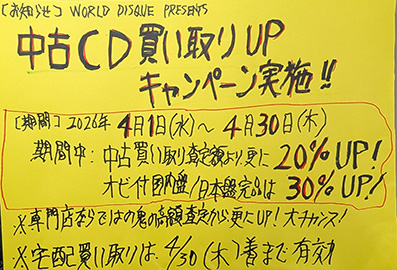 [お知らせ] WORLD DISQUE PRESENTS
中古CD買い取りUP
キャンペーン実施!!
[期間] 2026年 4月1日(水)～4月30日(木)
期間中:中古買い取り査定額より更に20%UP!
オビ付国内盤/日本盤完品は30%UP!
※専門店ならではの鬼の高額査定から更にUP!大チャンス!
※宅配買い取りは、4/30(木)着まで有効